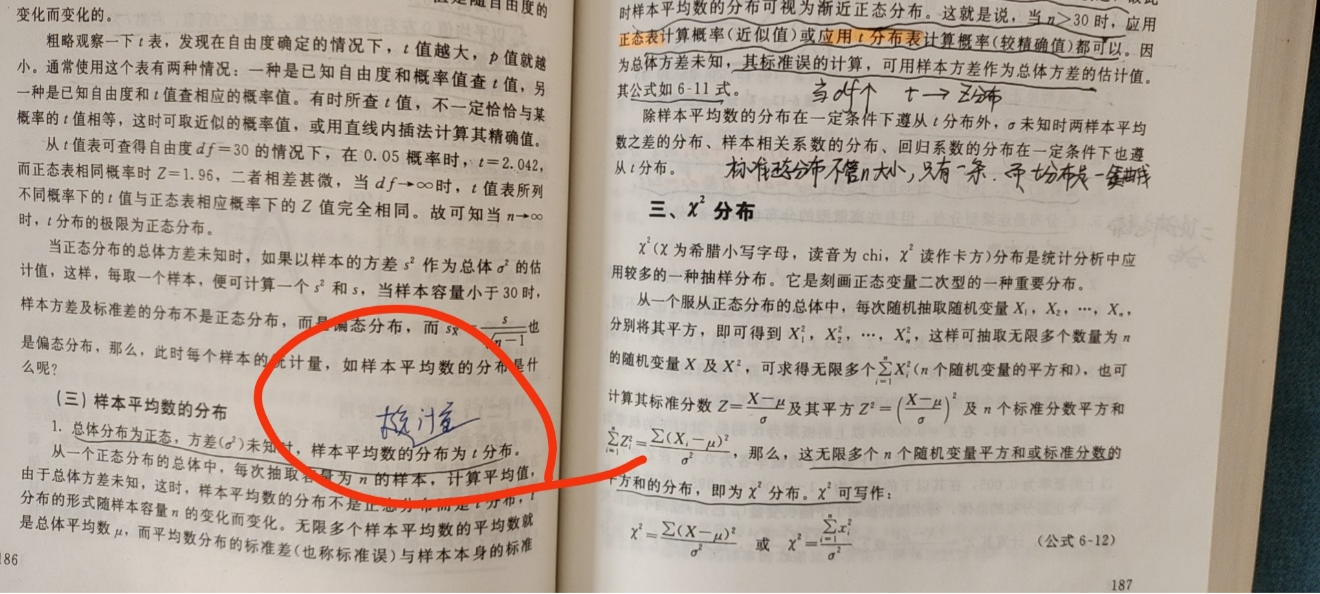 变化而变化的。
粗略观察一下 t 表，发现在自由度确定的情况下，t 值越大，p 值就越
小。通常使用这个表有两种情况：一种是已知自由度和概率值查 t 值，另
一种是已知自由度和 t 值查相应的概率值。有时所查 t 值，不一定恰恰与某
概率的 t 值相等，这时可取近似的概率值，或用直线内插法计算其精确值。
从 t 值表可查得自由度 df=30 的情况下，在 0.05 概率时，t=2.042，
而正态表相同概率时 Z=1.96，二者相差甚微，当 df→∞时，t 值表所列
不同概率下的 t 值与正态表相应概率下的 Z 值完全相同。故可知当 n→∞
时，t 分布的极限为正态分布。
当正态分布的总体方差未知时，如果以样本的方差 s² 作为总体 σ² 的估
计值，这样，每取一个样本，便可计算一个 s² 和 s，当样本容量小于 30 时，
样本方差及标准差的分布不是正态分布，而是偏态分布，而 sx̄=s/√(n−1) 也
是偏态分布，那么，此时每个样本的统计量，如样本平均数的分布是什
么呢？
（三）样本平均数的分布
统计量
1. 总体分布为正态，方差(σ²)未知时，样本平均数的分布为 t 分布。
从一个正态分布的总体中，每次抽取容量为 n 的样本，计算平均值，
由于总体方差未知，这时，样本平均数的分布不是正态分布而是 t 分布，t
分布的形式随样本容量 n 的变化而变化。无限多个样本平均数的平均数就
是总体平均数 μ，而平均数分布的标准差(也称标准误)与样本本身的标准
186
时样本平均数的分布可视为渐近正态分布。这就是说，当 n>30 时，应用
正态表计算概率(近似值)或应用 t 分布表计算概率(较精确值)都可以。因
为总体方差未知，其标准误的计算，可用样本方差作为总体方差的估计值。
其公式如 6-11 式。
当df↑ t→Z分布
除样本平均数的分布在一定条件下遵从 t 分布外，σ 未知时两样本平均
数之差的分布、样本相关系数的分布、回归系数的分布在一定条件下也遵
从 t 分布。
标准正态分布不管n大小，只有一条，而t分布是一簇曲线
三、χ² 分布
χ²(χ 为希腊小写字母，读音为 chi，χ² 读作卡方)分布是统计分析中应
用较多的一种抽样分布。它是刻画正态变量二次型的一种重要分布。
从一个服从正态分布的总体中，每次随机抽取随机变量 X₁，X₂，…，Xₙ，
分别将其平方，即可得到 X₁²，X₂²，…，Xₙ²，这样可抽取无限多个数量为 n
的随机变量 X 及 X²，可求得无限多个∑Xᵢ²(n 个随机变量的平方和)，也可
计算其标准分数 Z=(X−μ)/σ 及其平方 Z²=((X−μ)/σ)² 及 n 个标准分数平方和
∑Zᵢ²=∑(Xᵢ−μ)²/σ²，那么，这无限多个 n 个随机变量平方和或标准分数的
平方和的分布，即为 χ² 分布。χ² 可写作：
χ²=∑(X−μ)²/σ² 或 χ²=∑xᵢ²/σ² （公式 6-12）
187